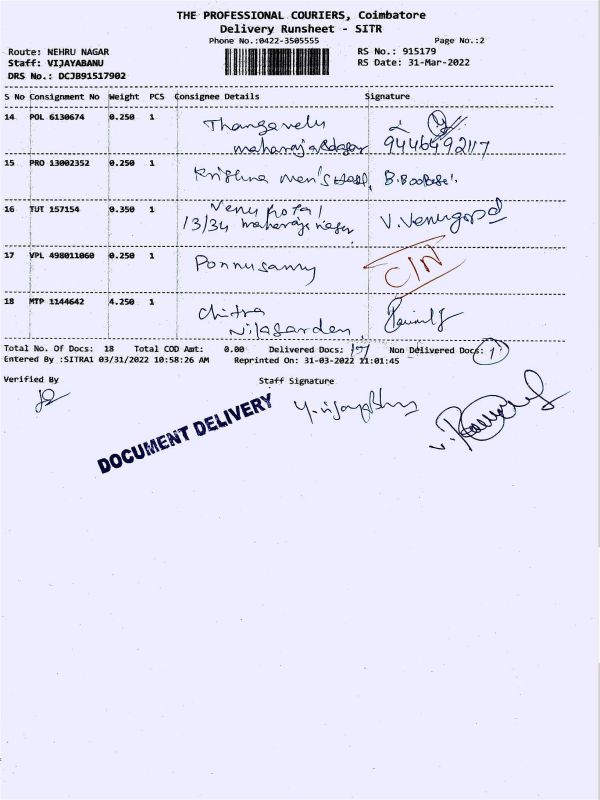 THE PROFESSIONAL COURIERS, Coimbatore
Delivery Runsheet - SITR
Phone No.:0422-3505555 Page No.:2
Route: NEHRU NAGAR RS No.: 915179
Staff: VIJAYABANU RS Date: 31-Mar-2022
DRS No.: DCJB91517902
S No Consignment No Weight PCS Consignee Details Signature
14 POL 6130674 0.250 1 Thangavelu
9446492117
15 PRO 13002352 0.250 1 Krishna men's
16 TUT 157154 0.350 1 Venugopal V. Venugopal
13/34
17 VPL 498011060 0.250 1 Ponnusamy C/N
18 MTP 1144642 4.250 1 Chitra
Total No. Of Docs: 18 Total COD Amt: 0.00 Delivered Docs: 17 Non Delivered Docs: 1
Entered By :SITRA1 03/31/2022 10:58:26 AM Reprinted On: 31-03-2022 11:01:45
Verified By Staff Signature
DOCUMENT DELIVERY